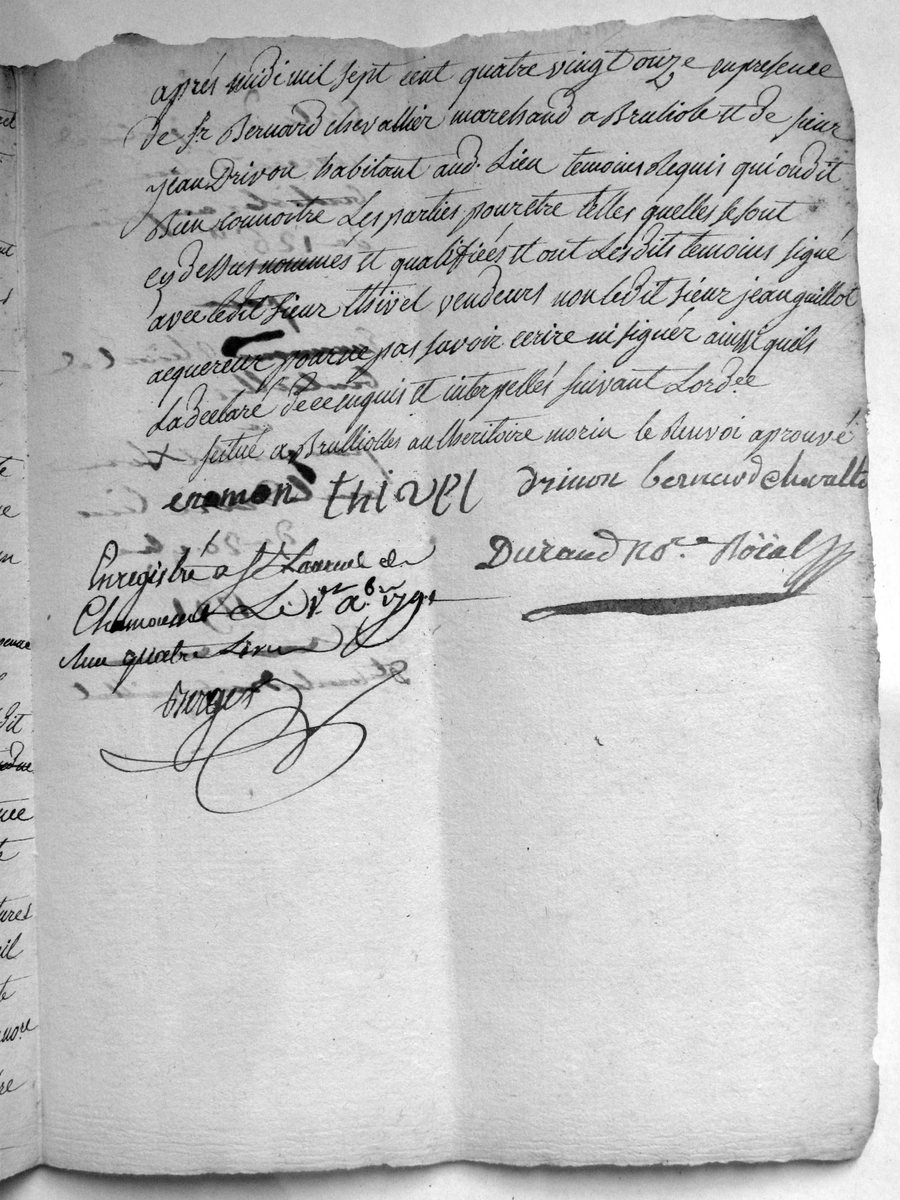 aprés midi mil sept cent quatre vingt onze en presence
de Sr Bernard chevallier marchand a Bruliole et de sieur
jean Drivon habitant aud. Lieu temoins requis qui ond it
Bien connoitre Les parties pour etre telles quelles se sont
cy dessus nommés et qualifiées et ont Les dits temoins signé
avec ledit sieur thivel vendeurs non ledit sieur jean guillot
acquereur pour ne pas savoir ecrire ni signér ainssi quils
La declaré de ce enquis et interpellés suivant Lord.ce
situé a Brulliolles au theritoire morin le Renvoi aprouvé
thivel drivon bernard chevallie
Durand No.re Roïal
Enregistré a St Laurent de
Chamousset Le 1er 8b.re 1791
Reçu quatre Livres